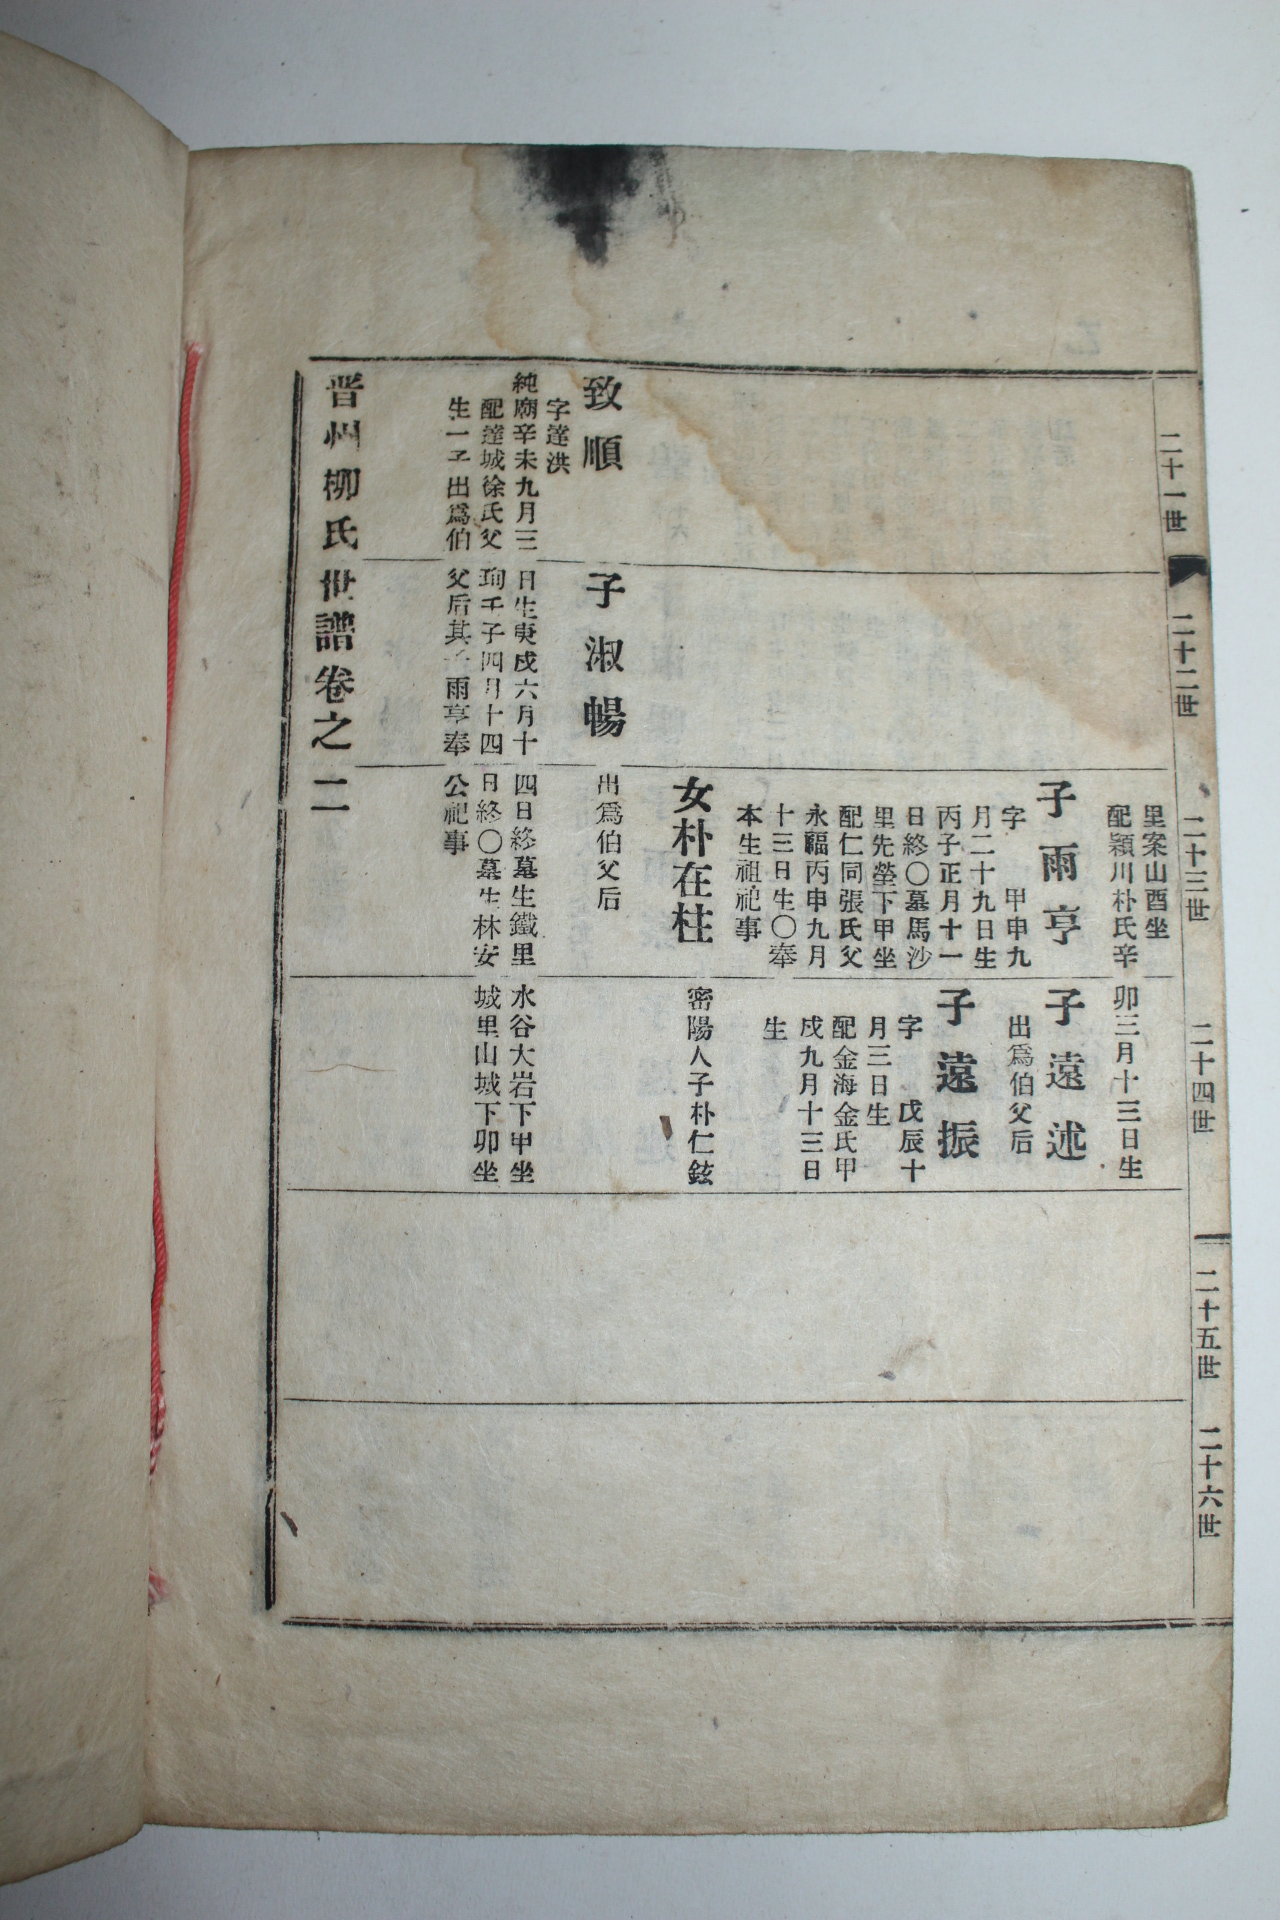 二十一世
二十二世
二十三世
二十四世
二十五世
二十六世
里案山酉坐
配潁川朴氏辛
卯三月十三日生
子雨亨
字 甲申九
月二十九日生
丙子正月十一
日終〇墓馬沙
里先塋下甲坐
配仁同張氏父
永福丙申九月
十三日生〇奉
本生祖祀事
子遠述
出爲伯父后
子遠振
字 戊辰十
月三日生
配金海金氏甲
戌九月十三日
生
女朴在柱
密陽人子朴仁鉉
致順
字達洪
純廟辛未九月三
日生庚戌六月十
四日終墓生鐵里
水谷大岩下甲坐
配達城徐氏父
珣壬子四月十四
日終〇墓生林安
城里山城下卯坐
生一子出爲伯
父后其子雨亨奉
公祀事
子淑暢
出爲伯父后
晋州柳氏世譜卷之二